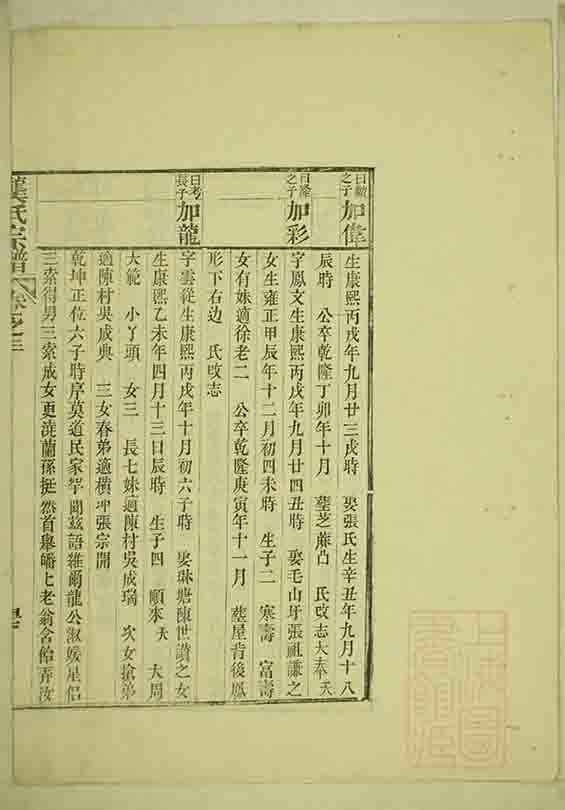 曰績之子 加偉
生康熙丙戌年九月廿三戌時 娶張氏生辛丑年九月十八
辰時 公卒乾隆丁卯年十月 塟芝蔴凸 氏改志大奉夭
曰隆之子 加彩
字鳳文生康熙丙戌年九月廿四丑時 娶毛山圩張祖謙之
女生雍正甲辰年十二月初四未時 生子二 寒壽 富壽
女有妹適徐老二 公卒乾隆庚寅年十一月 塟屋背後鳳
形下右边 氏改志
曰考長子 加龍
字雲從生康熙丙戌年十月初六子時 娶琳塘陳世讚之女
生康熙乙未年四月十三日辰時 生子四 順來夭 大周
大範 小丫頭 女三 長七妹適陳村吳成瑞 次女搶弟
適陳村吳成典 三女春弟適橫冲張宗開
乾坤正位六子時序莫道民家罕聞茲語維爾龍公淑媛是侶
三索得男三索成女更淺蘭孫挺然首舉皤七老翁含飴弄汝
氏宗譜 卷之三